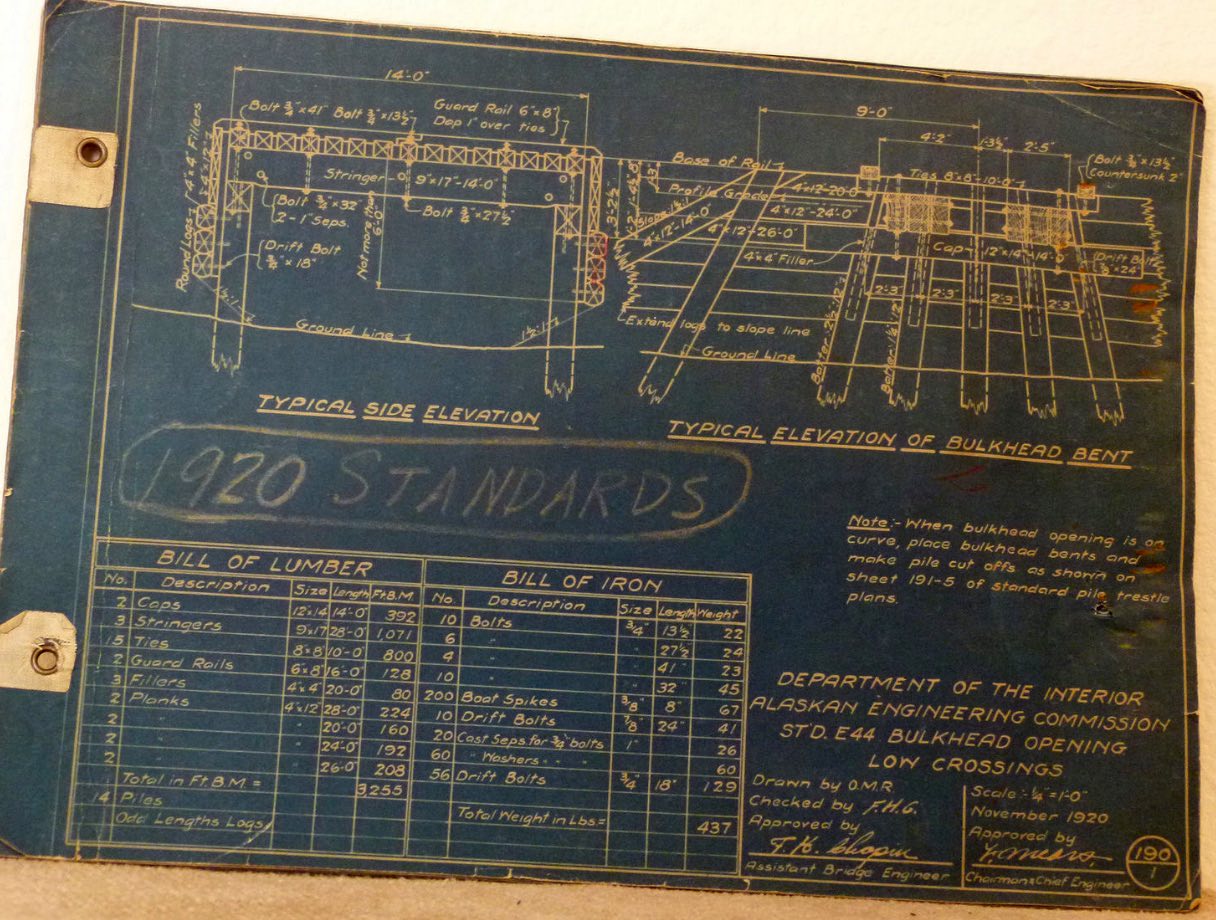 14'-0"
Bolt ¾"x41" Bolt ¾"x13½"
Guard Rail 6"x8"
Dap 1" over ties
4"x4" Fillers
Round Logs
Stringer 9"x17"-14'-0"
Bolt ¾"x32"
2-1" Seps.
Bolt ¾"x27½"
Not more than
6'-0"
Drift Bolt
¾"x18"
1½:1
1½:1
Ground Line
TYPICAL SIDE ELEVATION
9'-0"
4'-2" 1'-3½" 2'-5"
Base of Rail
Bolt ¾"x13½"
Countersunk 2"
Ties 8"x8"-10'-0"
Profile Grade
4"x12"-20'-0"
Slope 1½:1
4"x12"-14'-0"
4"x12"-24'-0"
4"x12"-26'-0"
3'-2½"
4"x4" Filler
Cap 12"x14"-14'-0"
Drift Bolt
⅞"x24"
2'-3" 2'-3" 2'-3" 2'-3"
Extend logs to slope line
Batter 2½":12"
Batter 1¼":12"
Ground Line
TYPICAL ELEVATION OF BULKHEAD BENT
1920 STANDARDS
Note:- When bulkhead opening is on
curve, place bulkhead bents and
make pile cut offs as shown on
sheet 191-5 of standard pile trestle
plans.
BILL OF LUMBER
No. Description Size Length Ft.B.M.
2 Caps 12"x14" 14'-0" 392
3 Stringers 9"x17" 28'-0" 1,071
15 Ties 8"x8" 10'-0" 800
2 Guard Rails 6"x8" 16'-0" 128
3 Fillers 4"x4" 20'-0" 80
2 Planks 4"x12" 28'-0" 224
2 " " 20'-0" 160
2 " " 24'-0" 192
2 " " 26'-0" 208
Total in Ft.B.M. = 3,255
14 Piles
Odd Lengths Logs
BILL OF IRON
No. Description Size Length Weight
10 Bolts ¾" 13½" 22
6 " " 27½" 24
4 " " 41" 23
10 " " 32" 45
200 Boat Spikes ⅜" 8" 67
10 Drift Bolts ⅞" 24" 41
20 Cast Seps. for ¾" bolts 1" 26
60 " Washers " " 60
56 Drift Bolts ¾" 18" 129
Total Weight in Lbs= 437
DEPARTMENT OF THE INTERIOR
ALASKAN ENGINEERING COMMISSION
ST'D. E44 BULKHEAD OPENING
LOW CROSSINGS
Drawn by O.M.R.
Checked by F.H.C.
Approved by
F. H. Chapin
Assistant Bridge Engineer
Scale:-¼"=1'-0"
November 1920
Approved by
Chairman & Chief Engineer
190
1